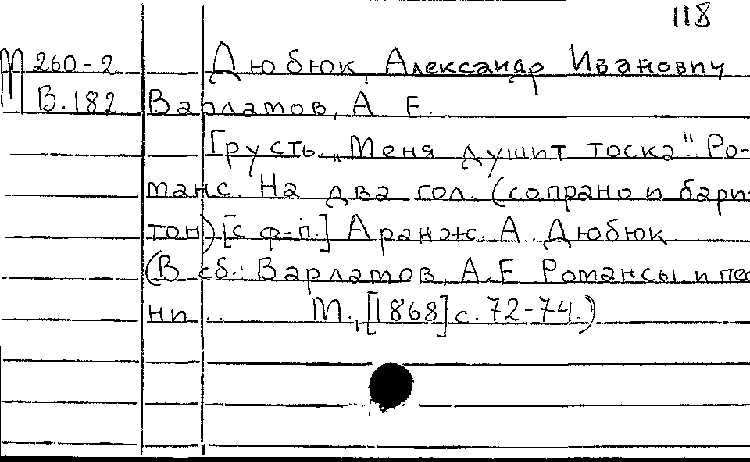 118
М 260-2 Дюбюк, Александр Иванович
В.182 Варламов, А. Е.
Грусть „Меня душит тоска". Ро-
манс. На два гол. (сопрано и бари-
тон) [с ф-п.] Аранж. А. Дюбюк.
(В сб.: Варламов А.Е. Романсы и пес
ни. М., [1868] с. 72-74.)